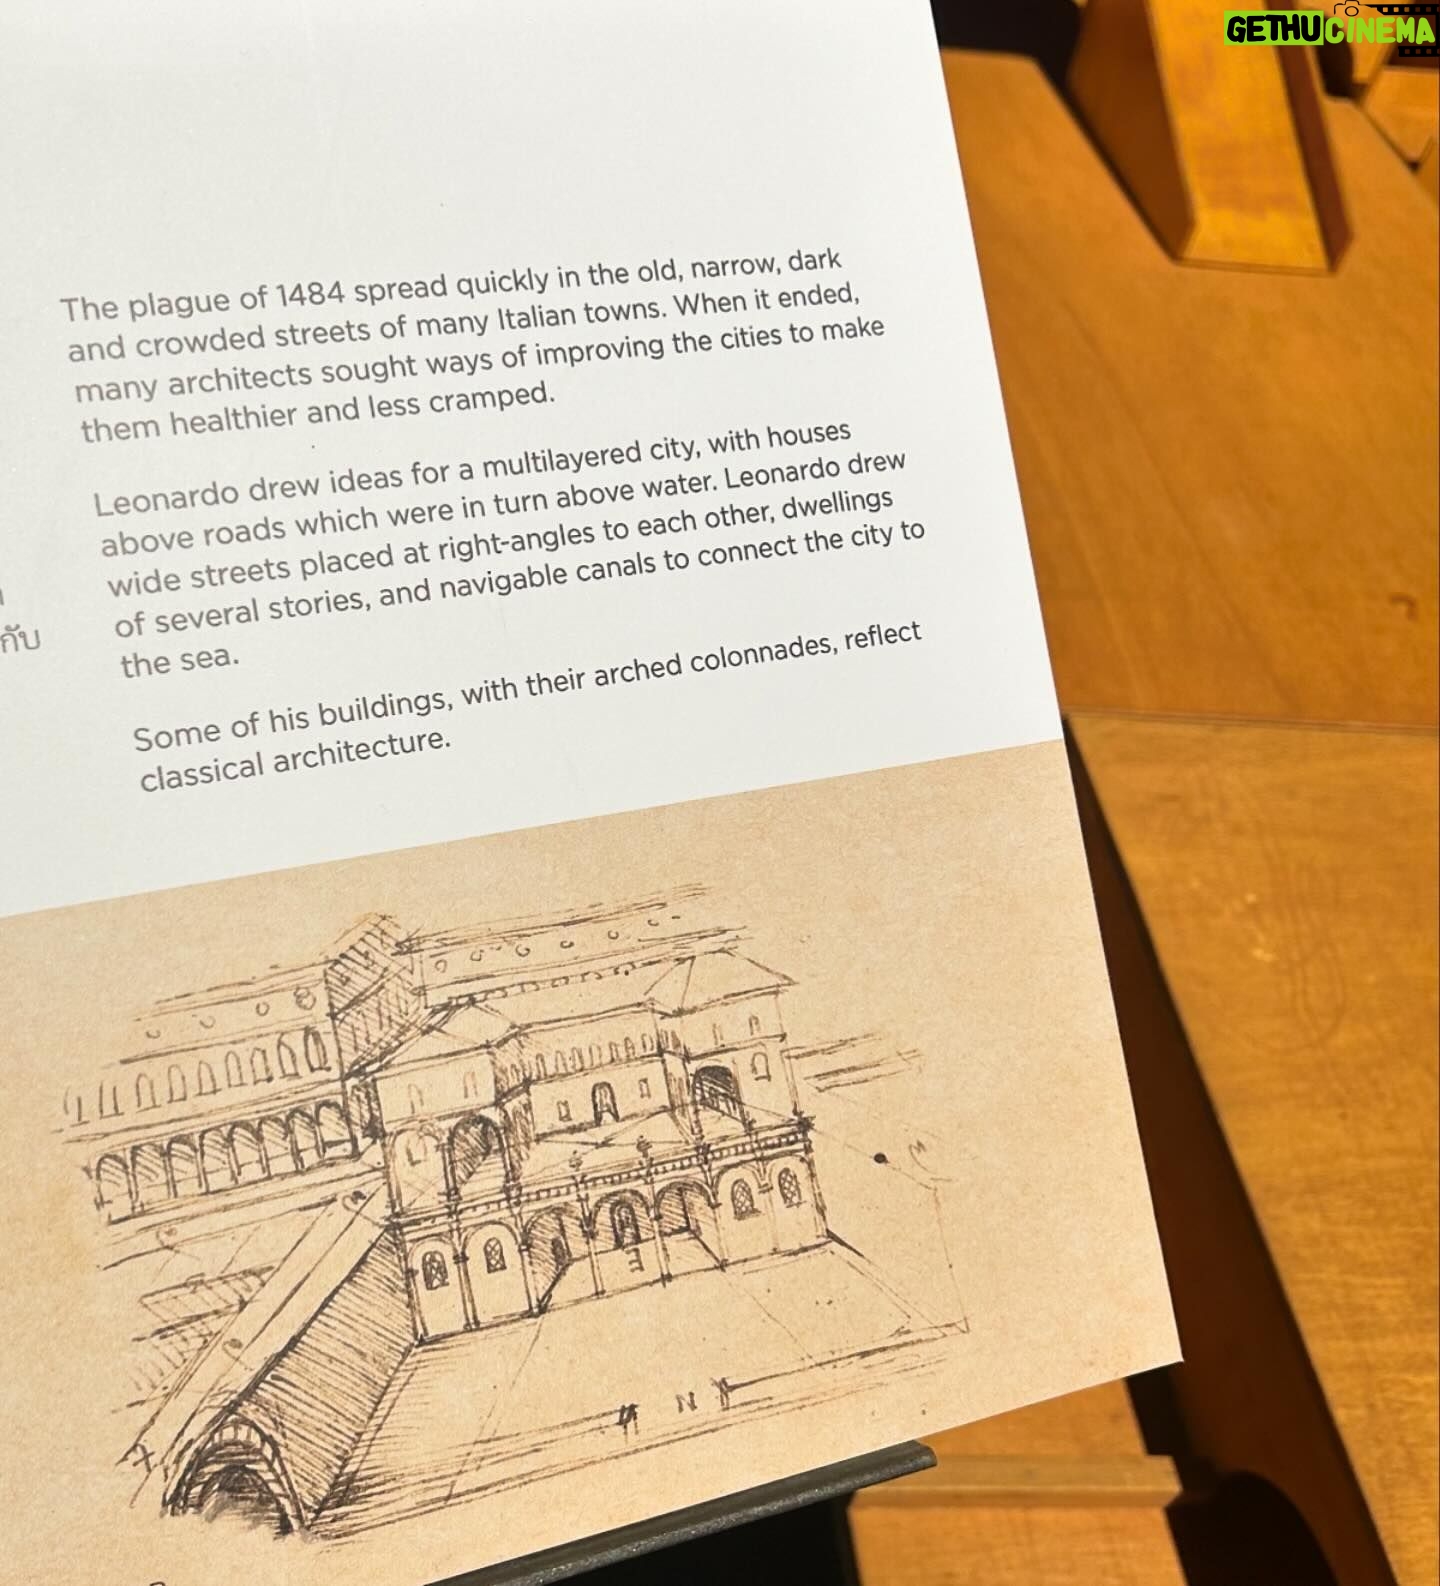 GETHUCINEMA
The plague of 1484 spread quickly in the old, narrow, dark
and crowded streets of many Italian towns. When it ended,
many architects sought ways of improving the cities to make
them healthier and less cramped.
Leonardo drew ideas for a multilayered city, with houses
above roads which were in turn above water. Leonardo drew
wide streets placed at right-angles to each other, dwellings
of several stories, and navigable canals to connect the city to
the sea.
กับ
Some of his buildings, with their arched colonnades, reflect
classical architecture.
N